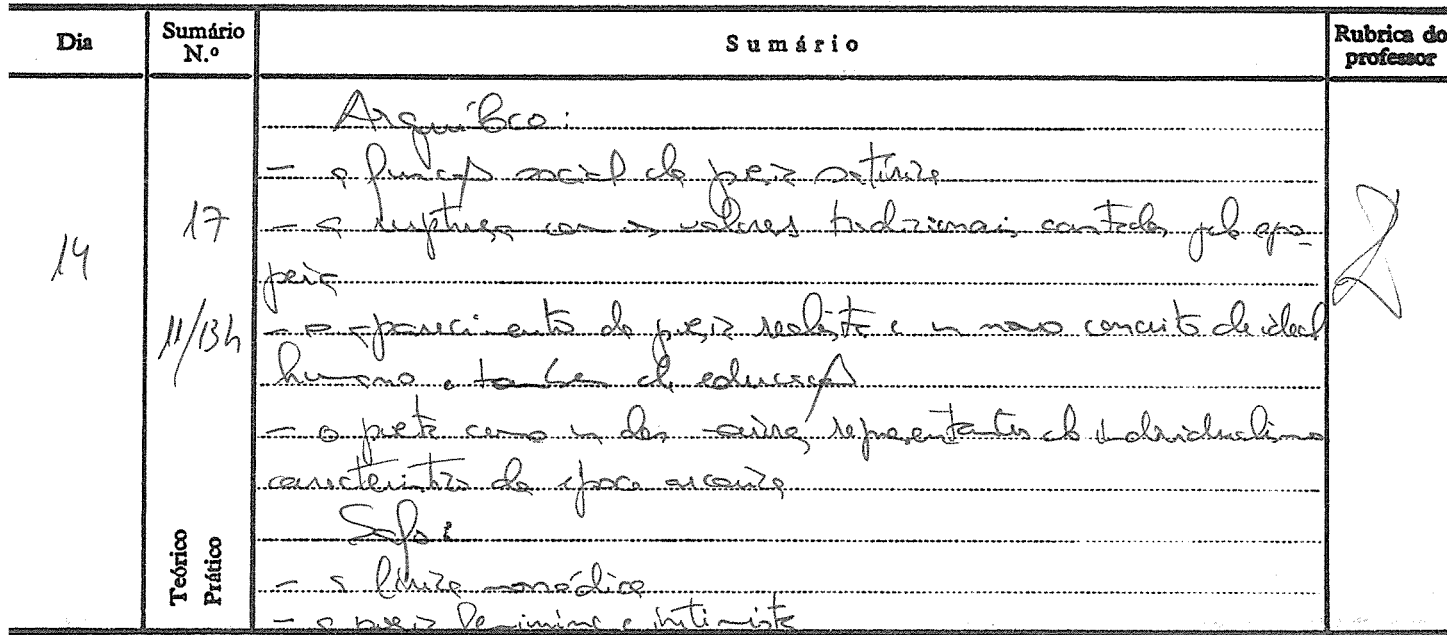 Dia
Sumário N.º
Sumário
Rubrica do professor
Arquíloco:
- a função social da poesia satírica
17
- a ruptura com os valores tradicionais cantados pela epo-
14
peia
11/13h
- o aparecimento da poesia realista e um novo conceito de ideal
humano e também de educação
- o poeta como um dos representantes do individualismo
característico da época arcaica
Safo:
- a lírica monódica
- a poesia feminina e intimista
Teórico
Prático